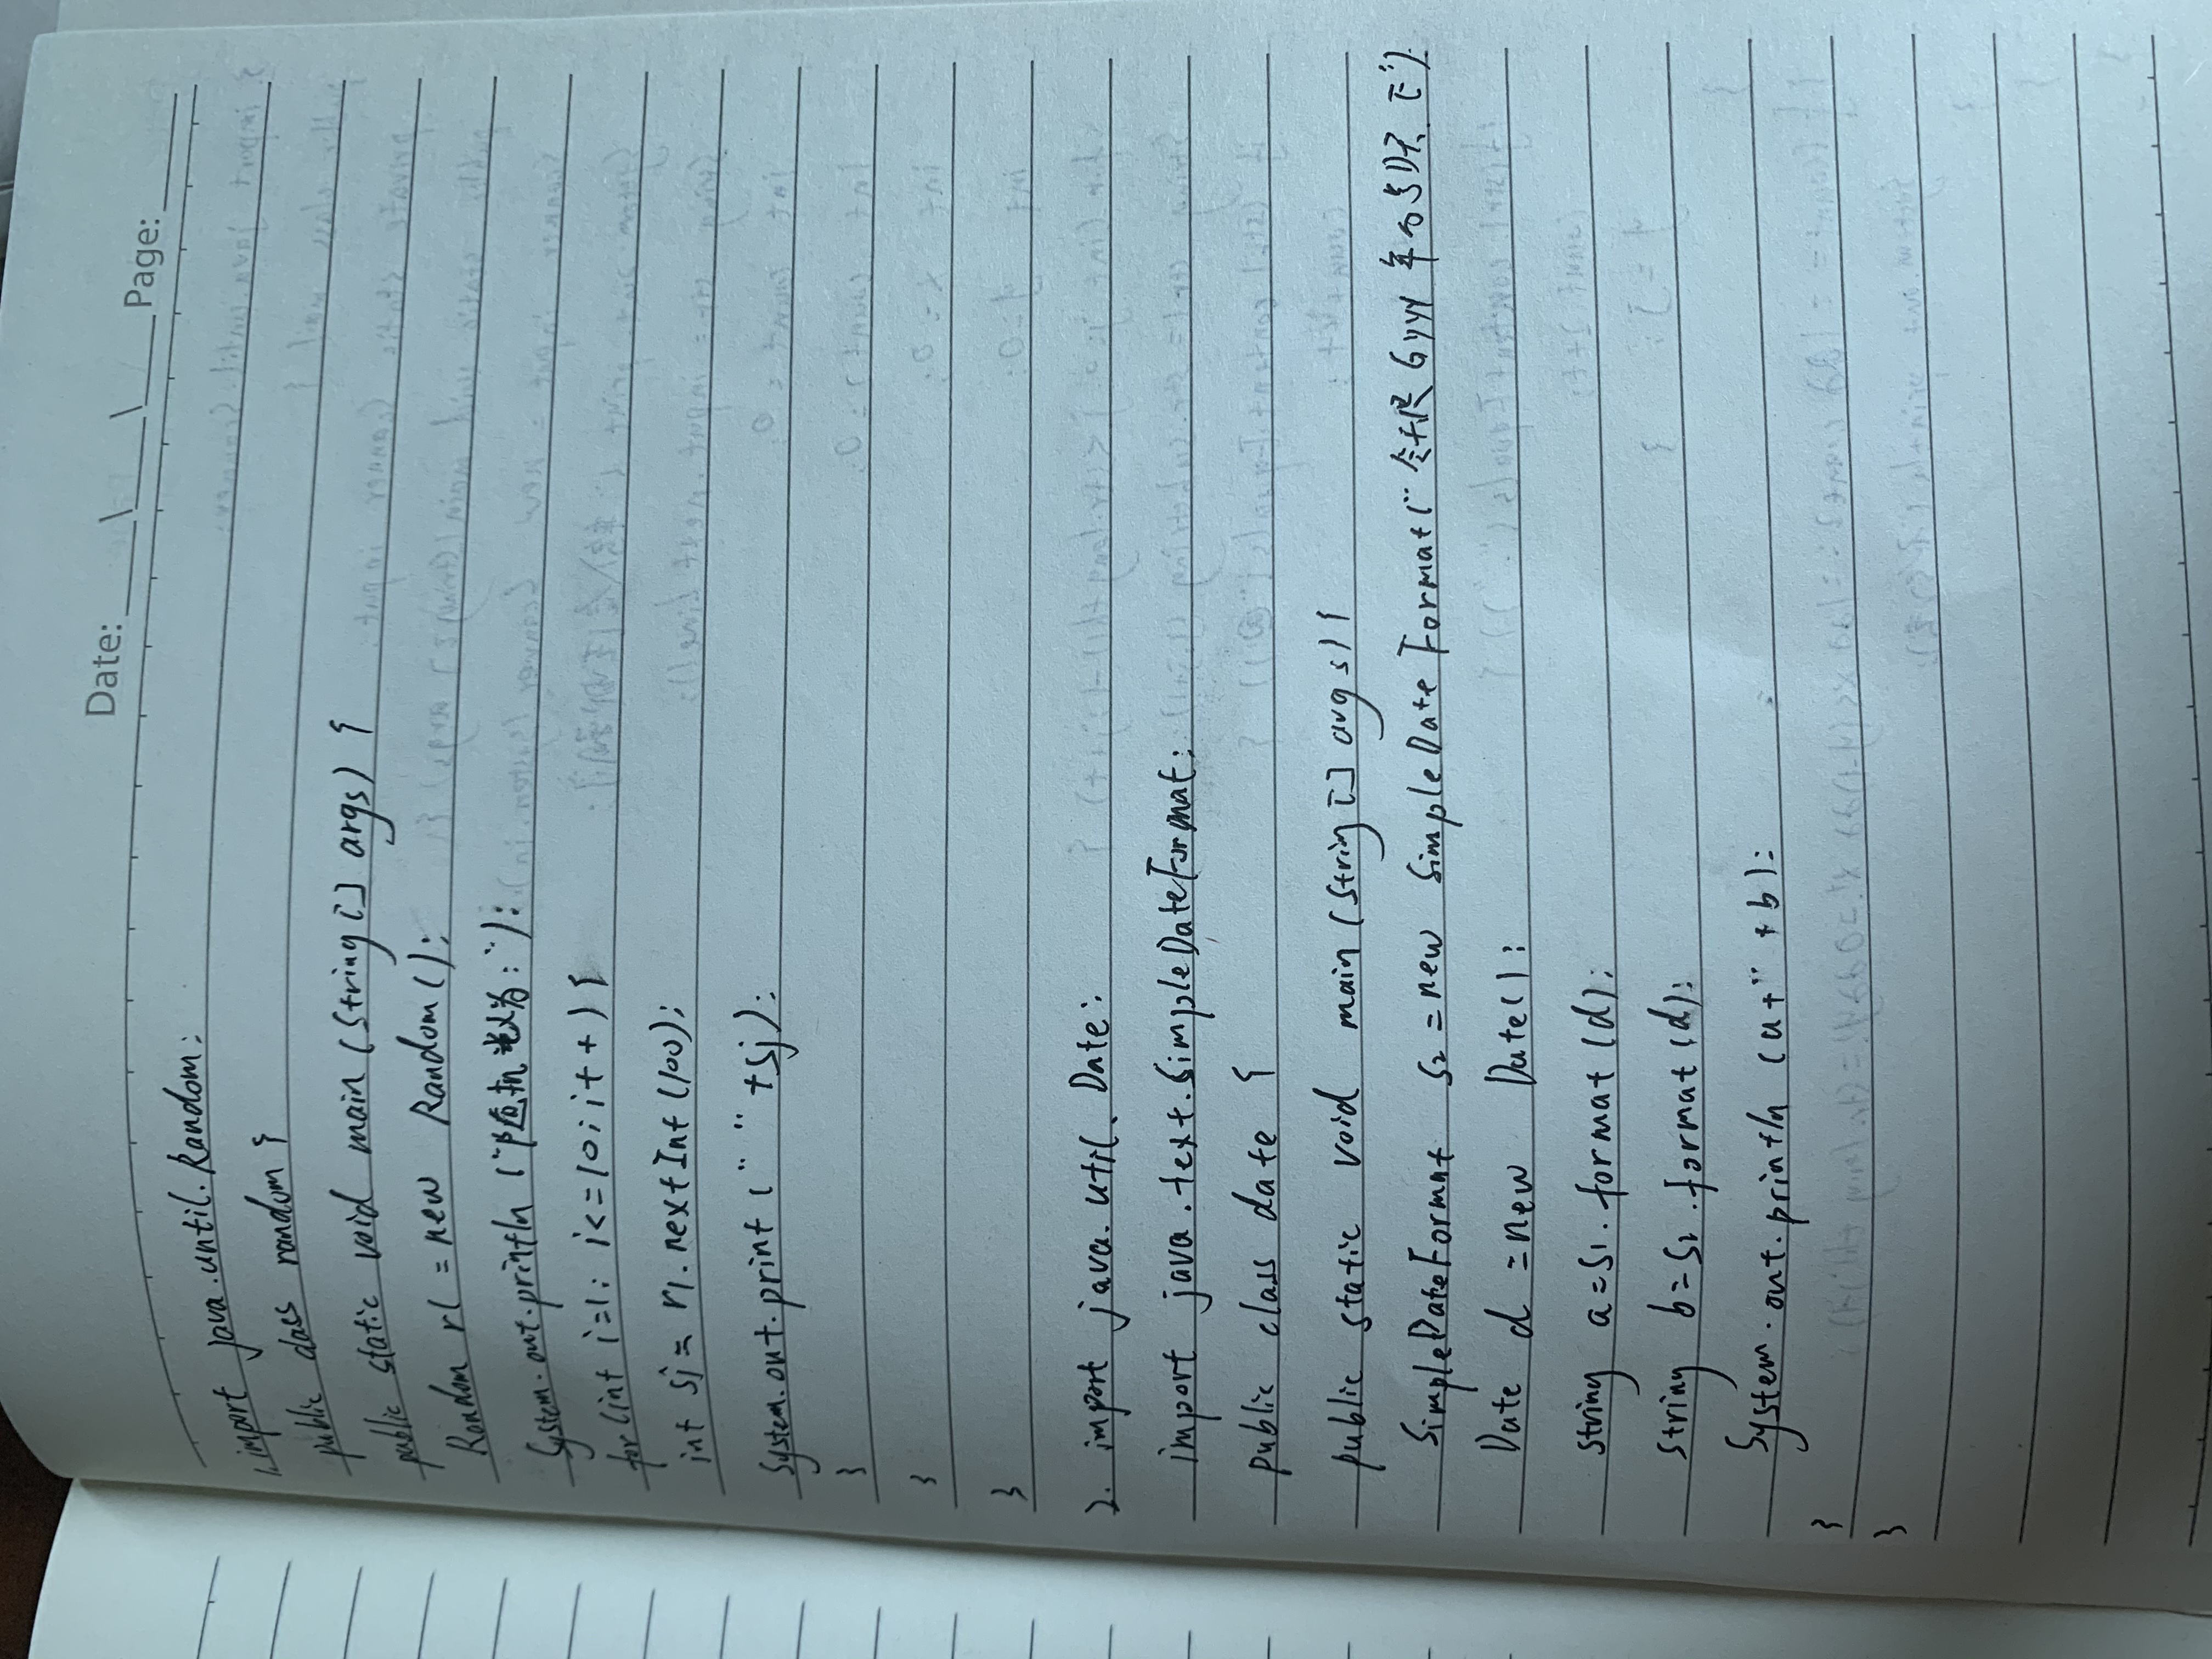 Date: Page:
1. import java.until.Random;
public class random {
public static void main (String [] args) {
Random r1 = new Random ();
System.out.println ("随机数为：");
for (int i=1; i<=10; i++) {
int sj = r1.nextInt (100);
System.out.print (" " +sj);
}
}
}
2. import java.util.Date;
import java.text.SimpleDateFormat;
public class date {
public static void main (String [] args) {
SimpleDateFormat s2 = new SimpleDateFormat ("今天是 Gyyy 年的 D天, E");
Date d = new Date ();
string a = s1.format (d);
string b = s2.format (d);
System.out.println (a+" "+b);
}
}